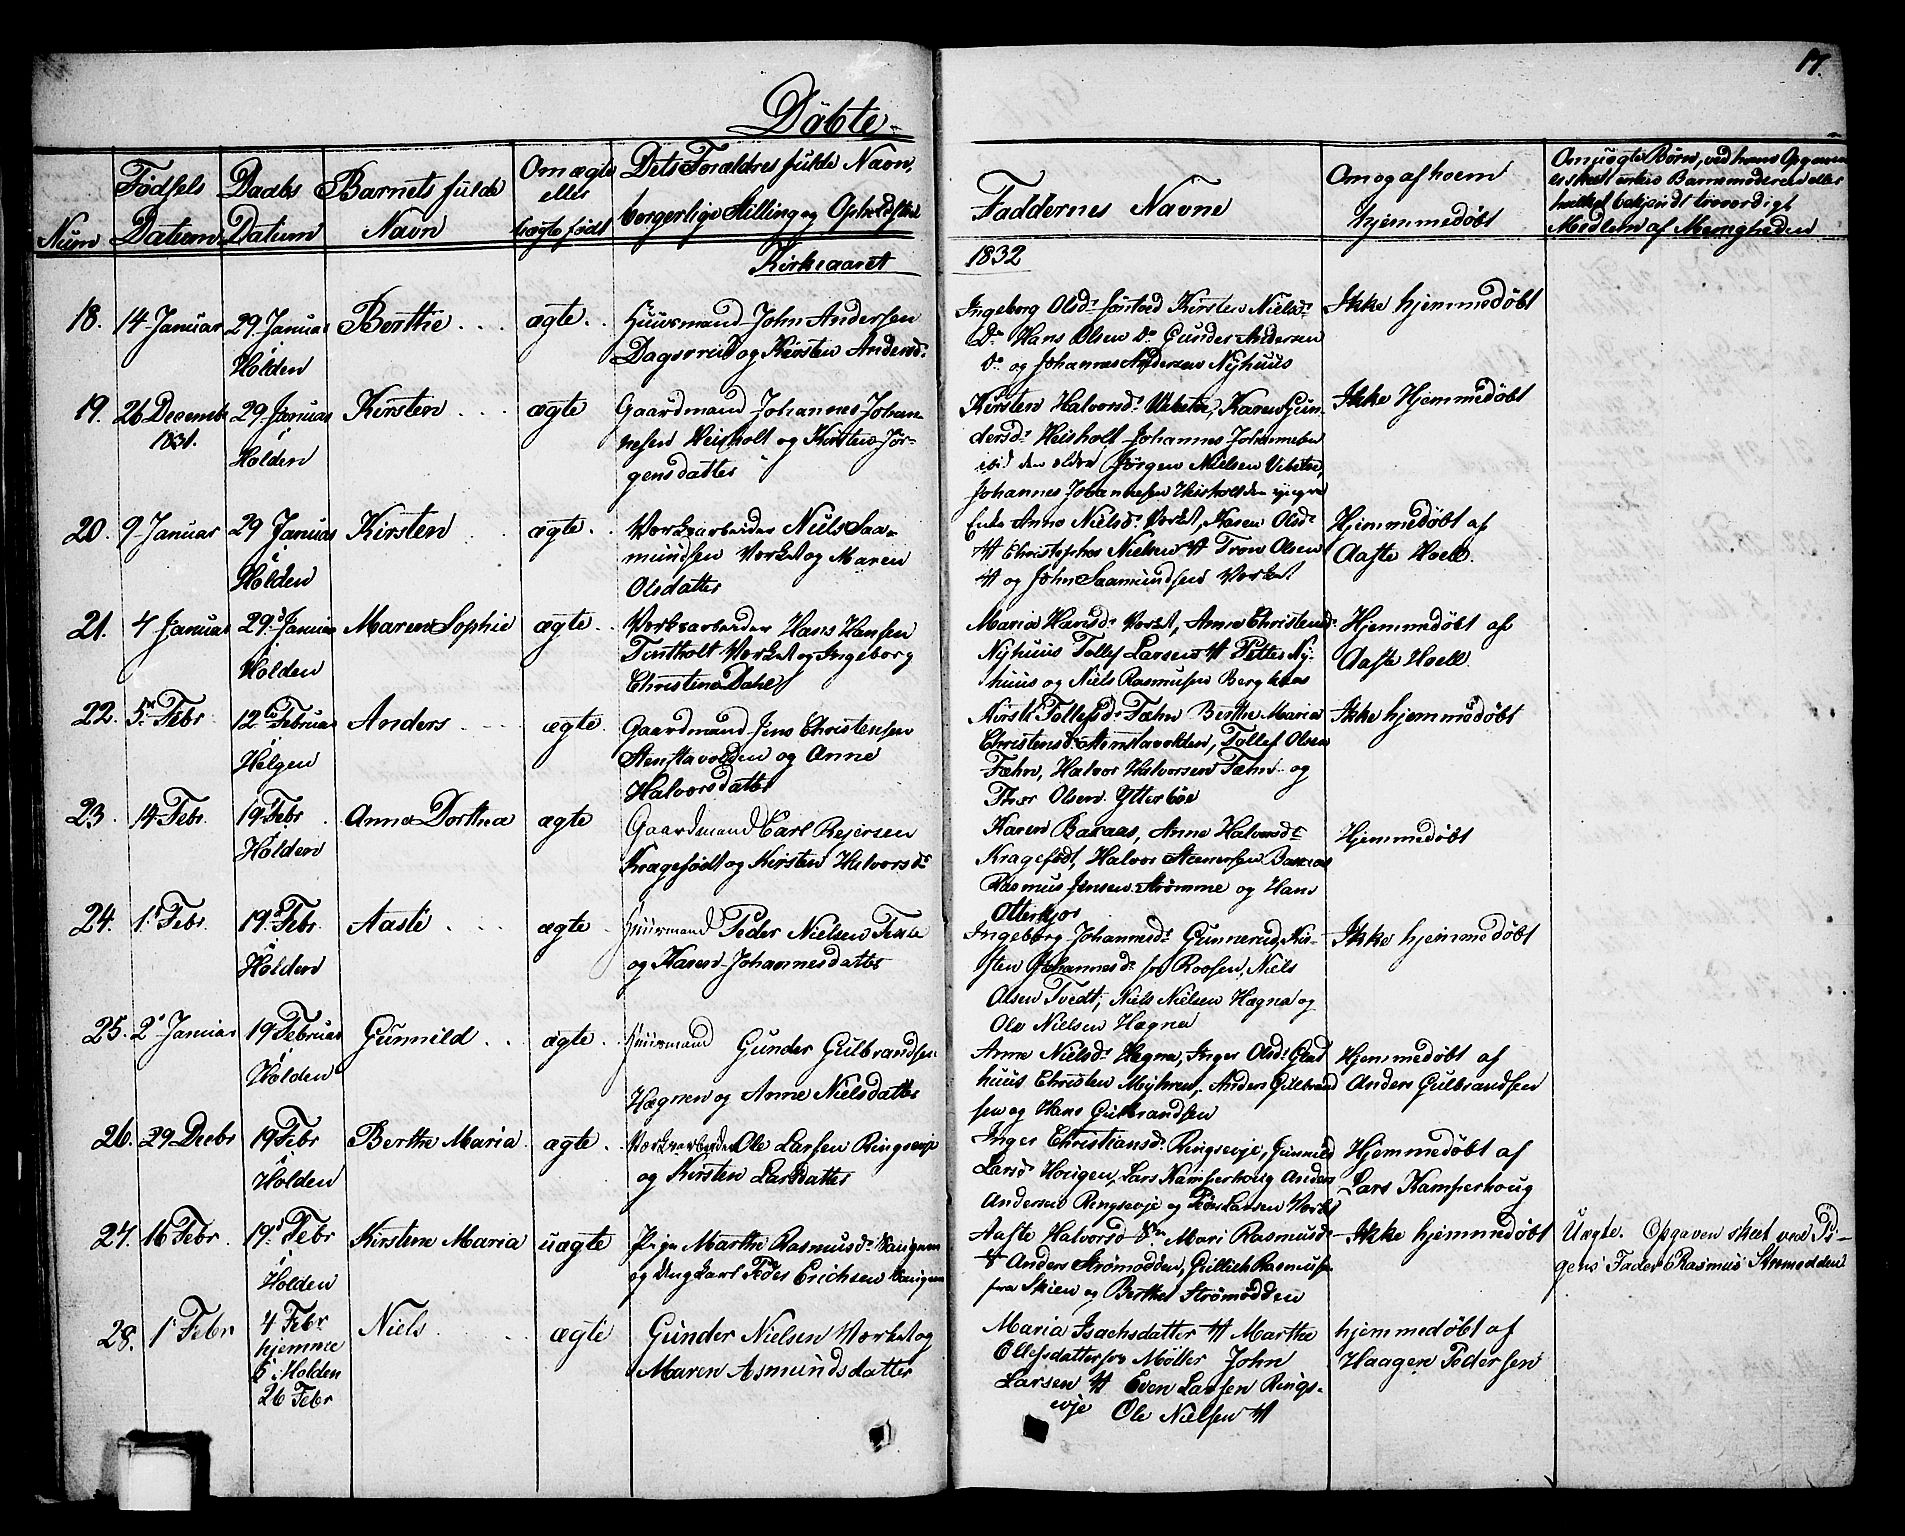 17.
Döbte.
Num
Födsels Datum
Daabs Datum
Barnets fulde Navn
Om ægte eller uægte födt
Dets Forældres fulde Navn, borgerlige Stilling og Opholdssted
Faddernes Navne
Om og af hvem hjemmedöbt
Om uægte Børn, ved hvis Opgaven
er skeet enten Barnemoderen eller
hvilket bekjendt troværdigt
Medlem af Menigheden
Kirkeaaret
1832
18. 14 Januar
29 Januar
i
Holden
Berthe
ægte
Huusmand John Andersen
Dagsrud og Kirsten Andersd.
Ingeborg Olsd. Kirsten Nielsd.
Do Hans Olsen Do Gunder Andersen
Do og Johannes Andersen Nyhuus
Ikke hjemmedöbt
19. 26 Decemb
1831.
29 Januar
i
Holden
Kirsten
ægte
Gaardmand Johannes Johan-
nesen Heisholt og Kirsten Jör-
gensdatter
Kirsten Halvorsd. Vibetoe, Karen Gun-
dersd. Heisholt Johannes Johannesen
ibid den eldre Jörgen Nielsen Vibetoe,
Johannes Johannesen Heisholt den yngre
Ikke Hjemmedöbt
20. 9 Januar
29 Januar
i
Holden
Kirsten
ægte
Værksarbeider Niels Saa-
mundsen Værket og Maren
Olsdatter
Enke Anne Nielsd. Værket, Karen Olsd.
Christopher Nielsen Tron Olsen
og John Saamundsen Værket
Hjemmedöbt af
Aaste Hoell.
21. 4 Januar
29 Januar
i
Holden
Maren Sophie
ægte
Værksarbeider Hans Hansen
Tinholt Værket og Ingeborg
Christene Dahl
Maria Hansd. Værket, Anne Christensd.
Nyhuus Tollef Larsen Petter Ny-
huus og Niels Rasmusen Bergknas
Hjemmedöbt af
Aaste Hoell.
22. 5 Febr
12 Februar
i
Helgen
Anders
ægte
Gaardmand Jens Christensen
Stenstavolden og Anne
Halvorsdatter
Kirsti Tollefsd. Fæhn Berthe Maria
Christensd. Stenstavolden, Tollef Olsen
Fæhn, Halvor Halvorsen Fæhn og
Thor Olsen Ytterböe
Ikke hjemmedöbt
23. 14 Febr.
19 Febr
i
Holden
Anne Dorthea
ægte
Gaardmand Carl Rejersen
Kragefödt og Kirsten Halvorsd.
Karen Bakaas, Anne Halvorsd.
Kragefödt, Halvor Steenersen Bakaas
Rasmus Jensen Strömme og Hans
Otterkjær
Hjemmedöbt
24. 1 Febr
19 Febr.
i
Holden
Aaste
ægte
Huusmand Peder Nielsen
og Karen Johannesdatter
Ingeborg Johannesd. Gunnerud, Kir-
sten Johannesd. fra Roosen, Niels
Olsen Tvedt, Niels Nielsen Hægna og
Ole Nielsen Hægna
Ikke hjemmedöbt
25. 2 Januar
19 Februar
i
Holden
Gunnild
ægte
Huusmand Gunder Gulbrandsen
Hægnen og Anne Nielsdatter
Anne Nielsd. Hægna, Inger Olsd. Glad-
huus Christen Myhren, Anders Gulbrand-
sen og Hans Gulbrandsen
Hjemmedöbt af
Anders Gulbrandsen
26. 29 Decbr
19 Febr
i
Holden
Berthe Maria
ægte
Værksarbeider Ole Larsen Ringsevje
og Kirsten Larsdatter
Inger Christiansd. Ringsevje, Gunnild
Larsd. Hougen, Lars Kamperhoug Anders
Andersen Ringsevje og Peder Larsen Værket
Hjemmedöbt af
Lars Kamperhoug
27. 16 Febr.
19 Febr
i
Holden
Kirstene Maria
uægte
Pige Marthe Rasmusd.
og Ungkarl Peder Erichsen
Aaste Halvorsd. Mari Rasmusd.
Anders Strömodden, Gullich Rasmusen
fra Skien og Berthe Strömodden
Ikke hjemmedöbt
Uægte. Opgaven skeet ved Pi-
gens Fader Rasmus Strömodden
28. 1 Febr
4 Febr
hjemme
i Holden
26 Febr
Niels
ægte
Gunder Nielsen Værket og
Maren Asmundsdatter
Maria Isachsdatter Marthe
Ollesdatter Möller John
Larsen Even Larsen Rings-
evje Ole Nielsen
hjemmedöbt af
Haagen Pedersen